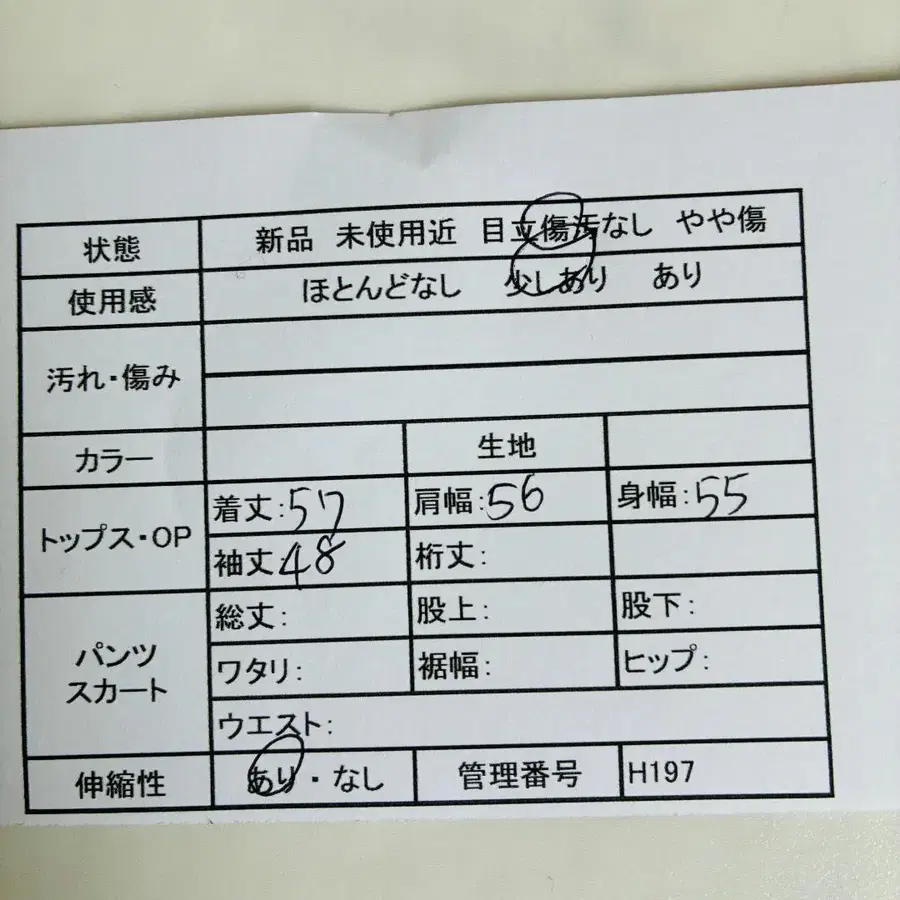 状態 新品 未使用近 目立傷汚なし やや傷
使用感 ほとんどなし 少しあり あり
汚れ・傷み
カラー 生地
トップス・OP 着丈:57 肩幅:56 身幅:55
袖丈:48 裄丈:
パンツ スカート 総丈: 股上: 股下:
ワタリ: 裾幅: ヒップ:
ウエスト:
伸縮性 あり・なし 管理番号 H197